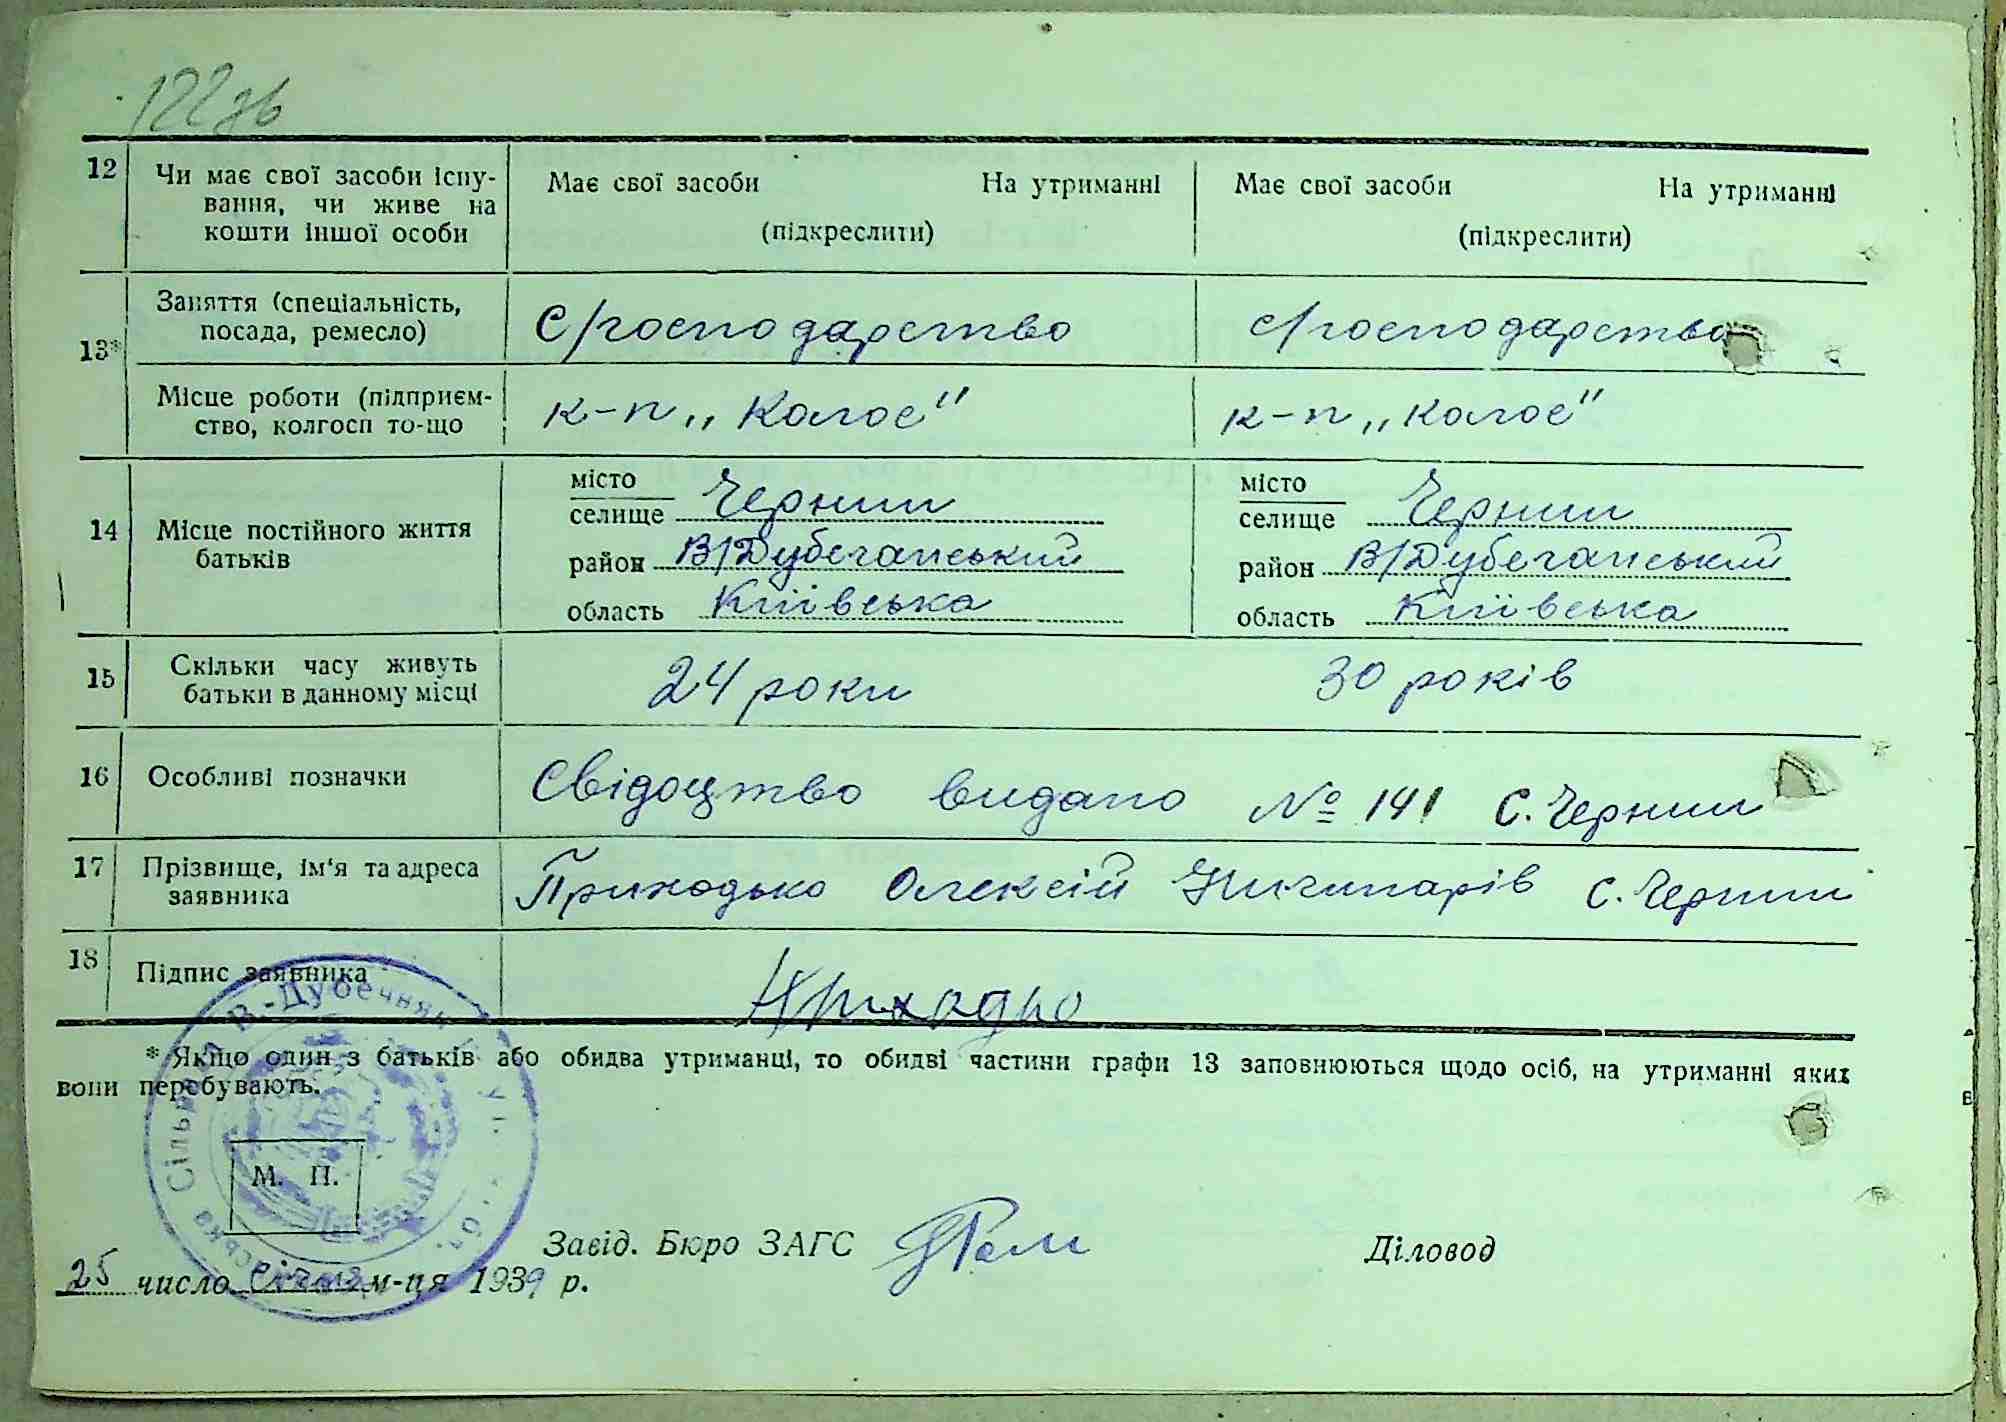 122зв
12 Чи має свої засоби існу- Має свої засоби На утриманні Має свої засоби На утриманні
вання, чи живе на
кошти іншої особи (підкреслити) (підкреслити)
13* Заняття (спеціальність, с/господарство с/господарство
посада, ремесло)
Місце роботи (підприєм- к-п „Колос" к-п „Колос"
ство, колгосп то-що
14 Місце постійного життя батьків
місто Чернин місто Чернин
селище селище
район В/Дубечанський район В/Дубечанський
область Київська область Київська
15 Скільки часу живуть 24 роки 30 років
батьки в данному місці
16 Особливі позначки Свідоцтво видано № 141 с. Чернин
17 Прізвище, ім'я та адреса Приходько Олексій Ничипарів с. Чернин
заявника
18 Підпис заявника
* Якщо один з батьків або обидва утриманці, то обидві частини графи 13 заповнюються щодо осіб, на утриманні яких
вони перебувають.
В.-Дубечан
Сільрада
М. П.
Завід. Бюро ЗАГС Діловод
25 число січня м-ця 1939 р.